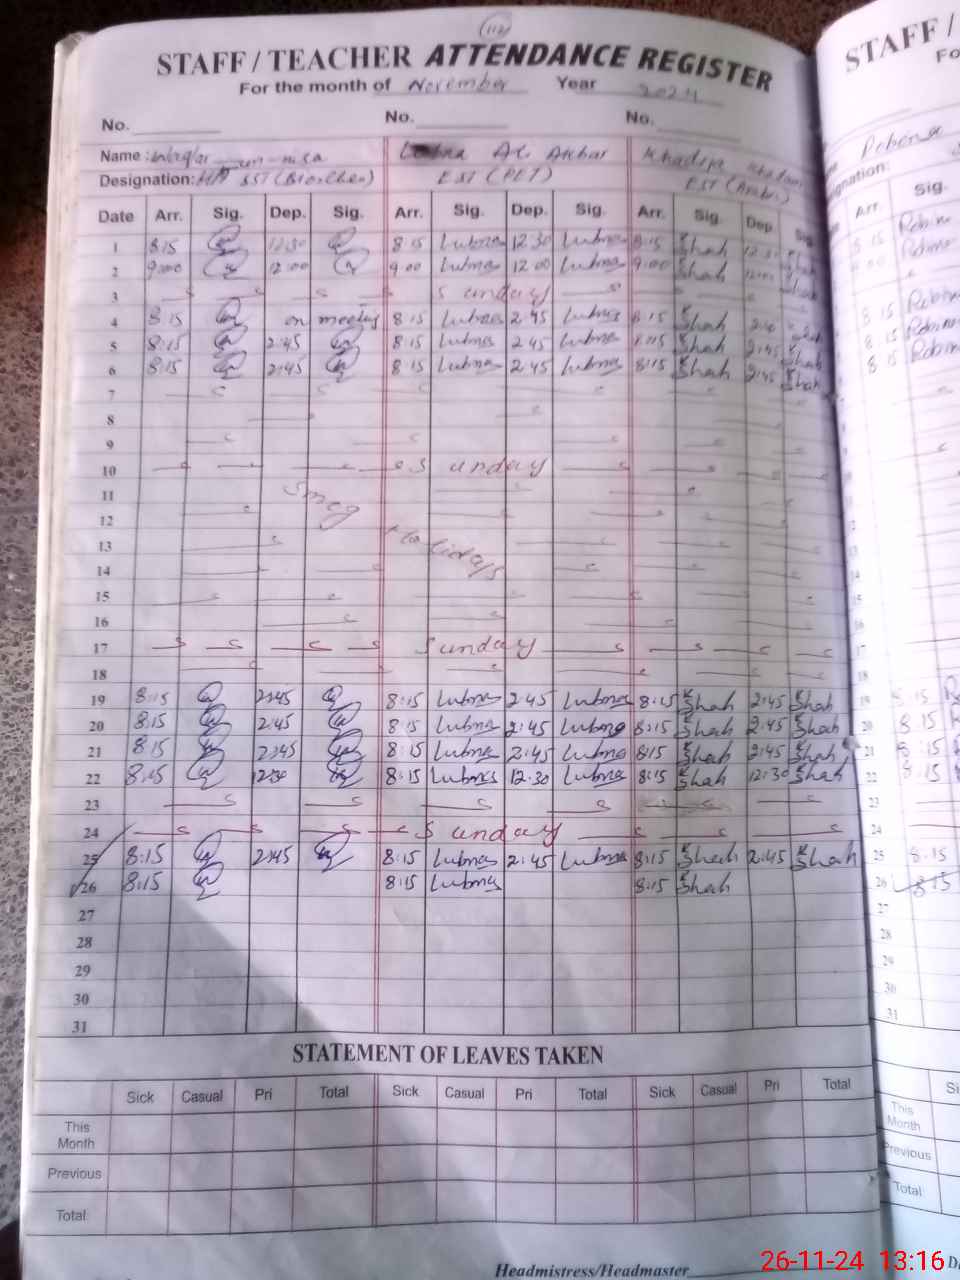 112
STAFF / TEACHER ATTENDANCE REGISTER
For the month of November Year 2024
No. No. No.
Name : un-nisa Lubna Ali Akbar Khadija
Designation: SST (Bio-Chem) EST (PET) EST (Arabic)
Date Arr. Sig. Dep. Sig. Arr. Sig. Dep. Sig. Arr. Sig. Dep. Sig.
1 8:15 12:30 8:15 Lubna 12.30 Lubna 8:15 Shah 12:30 Shah
2 9:00 12:00 9.00 Lubna 12.00 Lubna 9:00 Shah 12:00 Shah
3 Sunday
4 8:15 on meeting 8:15 Lubna 2:45 Lubna 8:15 Shah Shah
5 8:15 2:45 8:15 Lubna 2:45 Lubna 8:15 Shah 2:45 Shah
6 8:15 2:45 8:15 Lubna 2:45 Lubna 8:15 Shah 2:45 Shah
7
8
9
10 Sunday
11 Smog
12
13 Holidays
14
15
16
17 Sunday
18
19 8:15 2:45 8:15 Lubna 2:45 Lubna 8:15 Shah 2:45 Shah
20 8:15 2:45 8:15 Lubna 2:45 Lubna 8:15 Shah 2:45 Shah
21 8:15 2:45 8:15 Lubna 2:45 Lubna 8:15 Shah 2:45 Shah
22 8:15 12:30 8:15 Lubna 12.30 Lubna 8:15 Shah 12:30 Shah
23
24 Sunday
25 8:15 2:45 8:15 Lubna 2:45 Lubna 8:15 Shah 2:45 Shah
26 8:15 8:15 Lubna 8:15 Shah
27
28
29
30
31
STATEMENT OF LEAVES TAKEN
Sick Casual Pri Total Sick Casual Pri Total Sick Casual Pri Total
This Month
Previous
Total:
Headmistress/Headmaster
STAFF /
Robina
Arr. Sig.
8:15 Robina
Robina
8:15 Robina
8:15 Robina
8:15 Robina
19 8:15
20 8:15
21 8:15
22 8:15
23
24
25 8:15
26 8:15
27
28
29
30
31
This Month
Previous
Total:
26-11-24 13:16